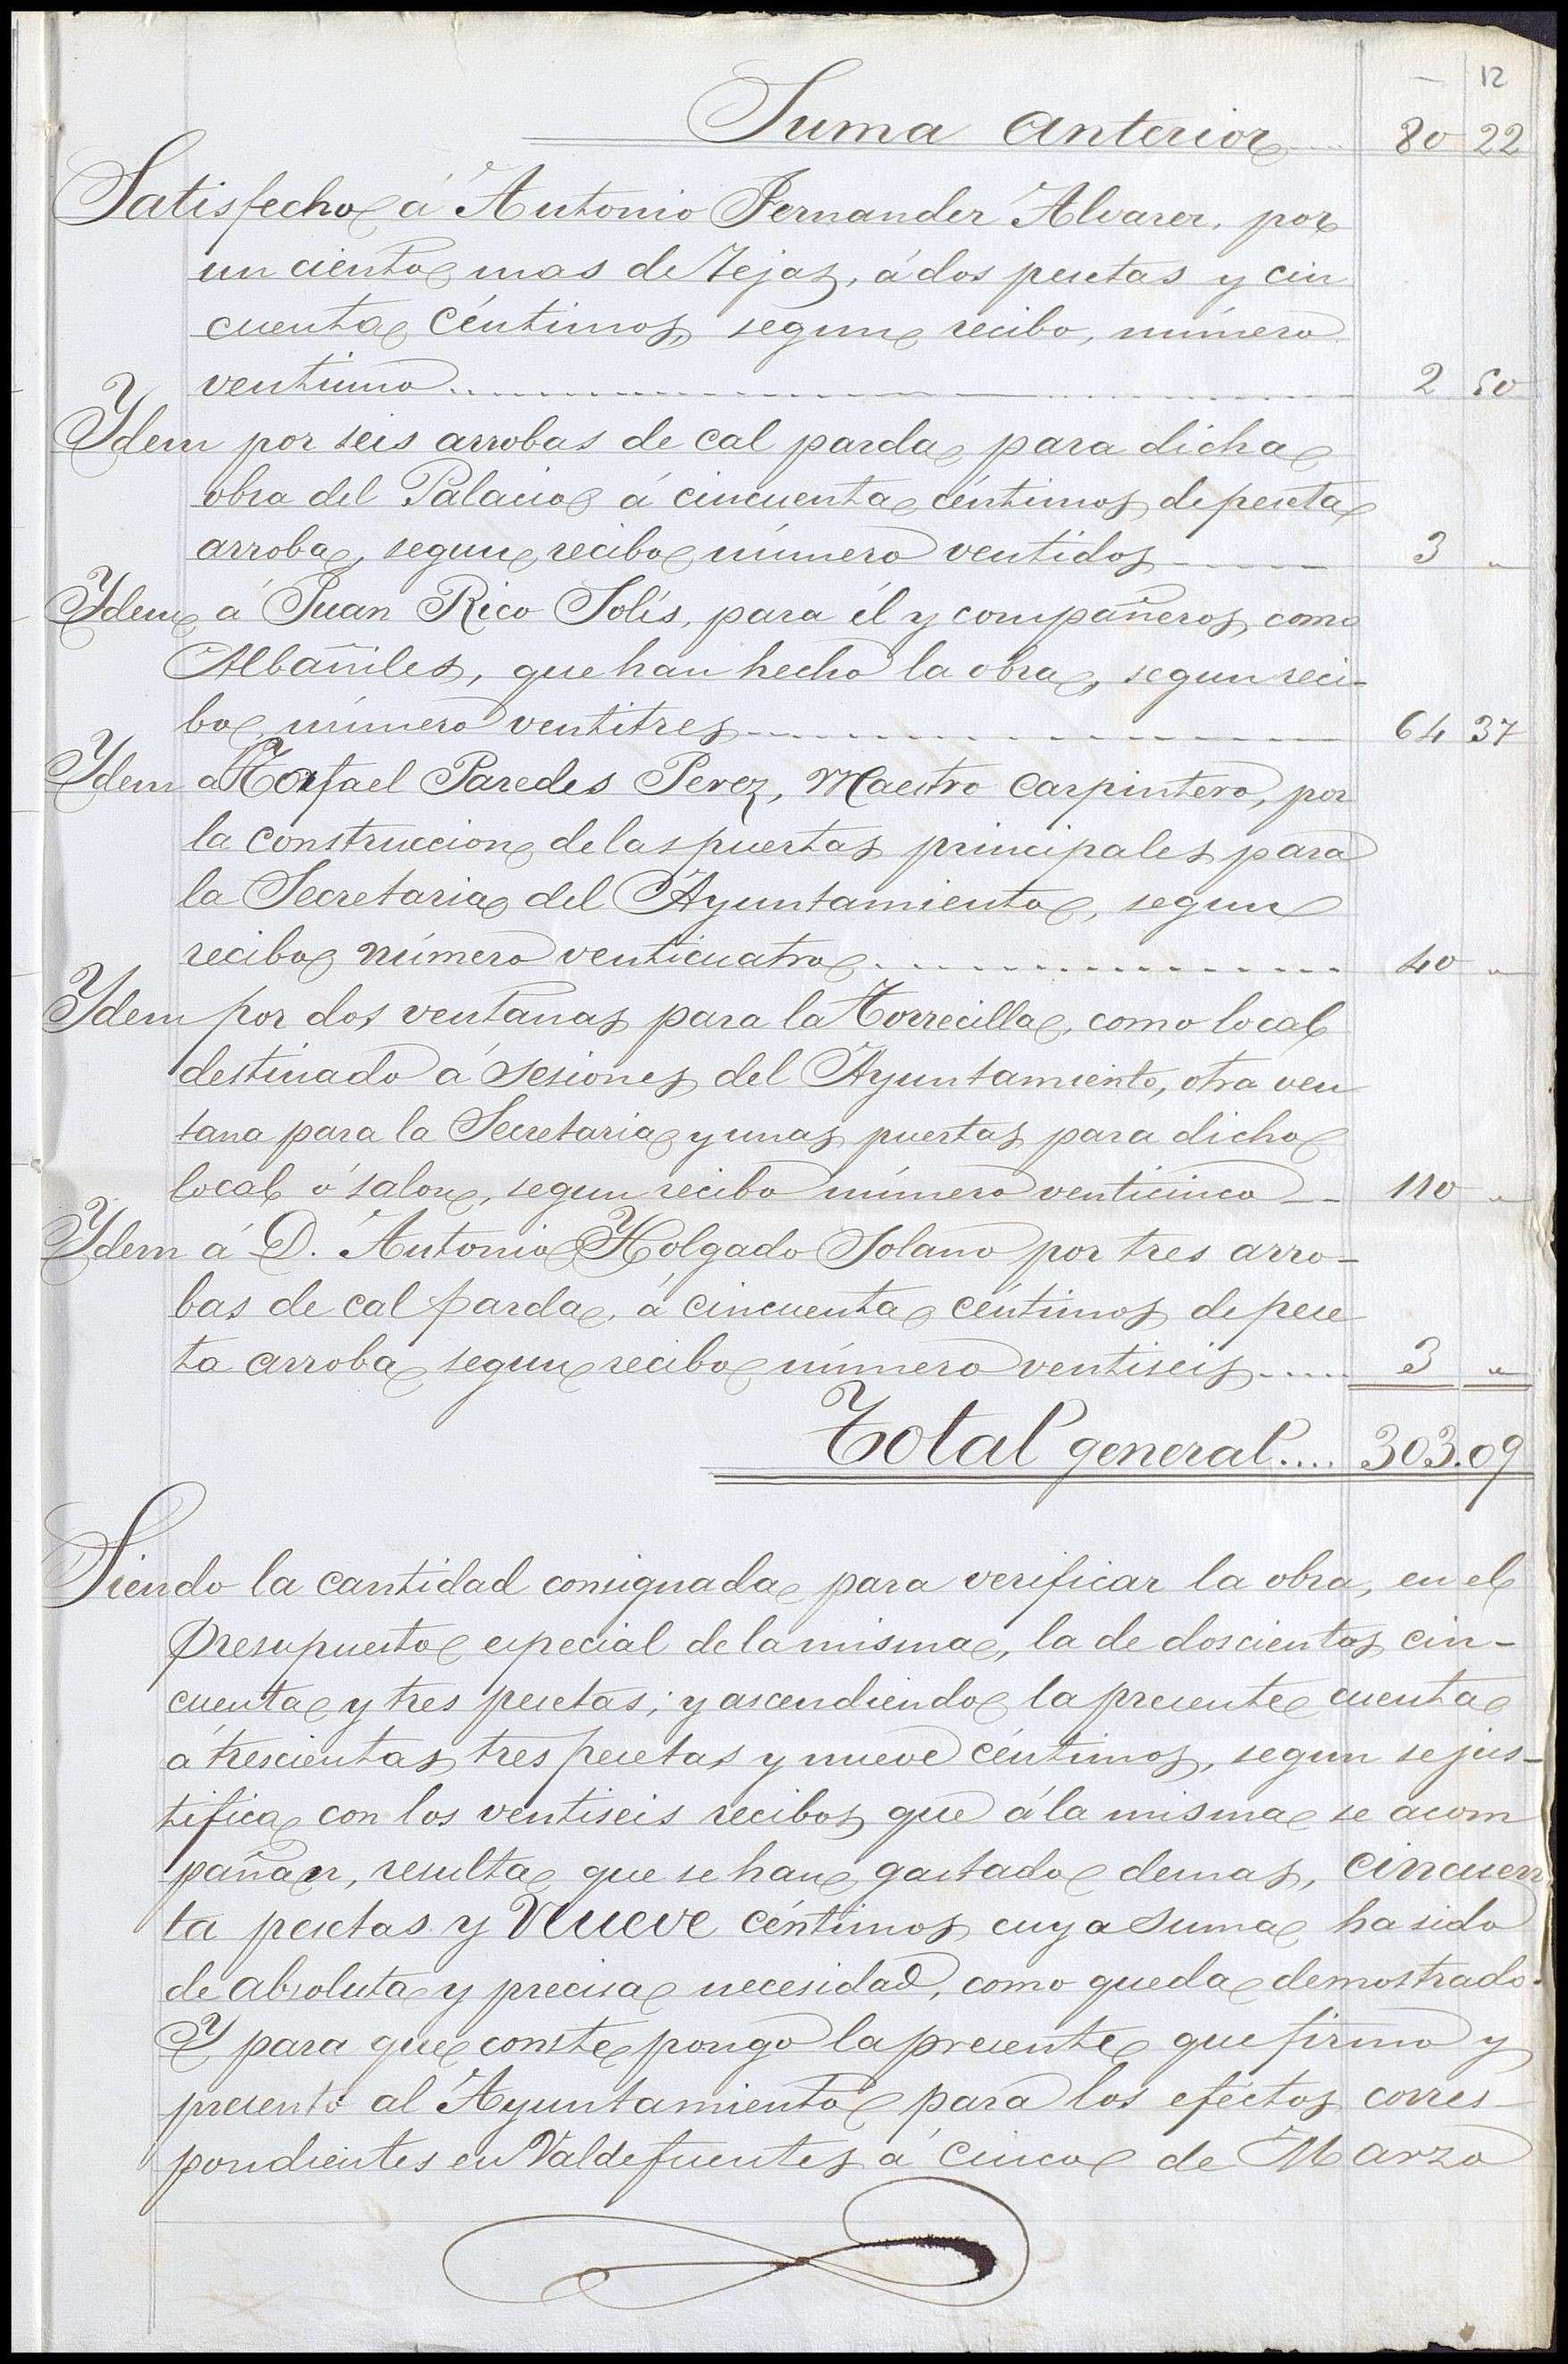 12
Suma anterior 80 22
Satisfecho á Antonio Fernandez Alvarez, por
un ciento mas de tejas, á dos pesetas y cin
cuenta céntimos, segun recibo, número
ventiuno 2 50
Ydem por seis arrobas de cal parda para dicha
obra del Palacio á cincuenta céntimos de peseta
arroba, segun recibo número ventidos 3 "
Ydem á Juan Rico Solís, para él y compañeros, como
Albañiles, que han hecho la obra, segun reci-
bo número ventitres 64 37
Ydem a Rafael Paredes Perez, Maestro Carpintero, por
la construccion de las puertas principales para
la Secretaria del Ayuntamiento, segun
recibo número venticuatro 40 "
Ydem por dos ventanas para la Torrecilla, como local
destinado á sesiones del Ayuntamiento, otra ven
tana para la Secretaria y unas puertas para dicho
local ó salon, segun recibo número venticinco 110 "
Ydem á D. Antonio Holgado Solano por tres arro-
bas de cal parda, á cincuenta céntimos de pese
ta arroba segun recibo número ventiseis 3 "
Total general.... 303.09
Siendo la cantidad consignada para verificar la obra, en el
Presupuesto especial de la misma, la de doscientas cin-
cuenta y tres pesetas; y ascendiendo la presente cuenta
á trescientas tres pesetas y nueve céntimos, segun se jus-
tifica con los ventiseis recibos que á la misma se acom
pañan, resulta que se han gastado demas, cincuen
ta pesetas y Nueve céntimos cuya suma ha sido
de absoluta y precisa necesidad, como queda demostrado.
Y para que conste pongo la presente que firmo y
presento al Ayuntamiento para los eféctos corres-
pondientes en Valdefuentes á cinco de Marzo